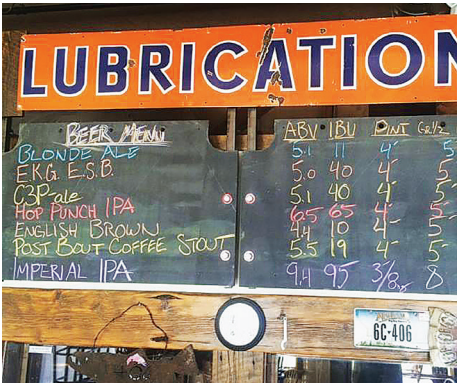 LUBRICATION
BEER MENU ABV IBU PINT
BLONDE ALE 5.1 11 4 5
E.K.G. E.S.B. 5.0 40 4 5
C3Pale 5.1 40 4 5
HOP PUNCH IPA 6.5 65 4 5
ENGLISH BROWN 4.4 10 4 5
POST BOUT COFFEE STOUT 5.5 19 4 5
IMPERIAL IPA 9.4 95 3/8oz 8
6C·406